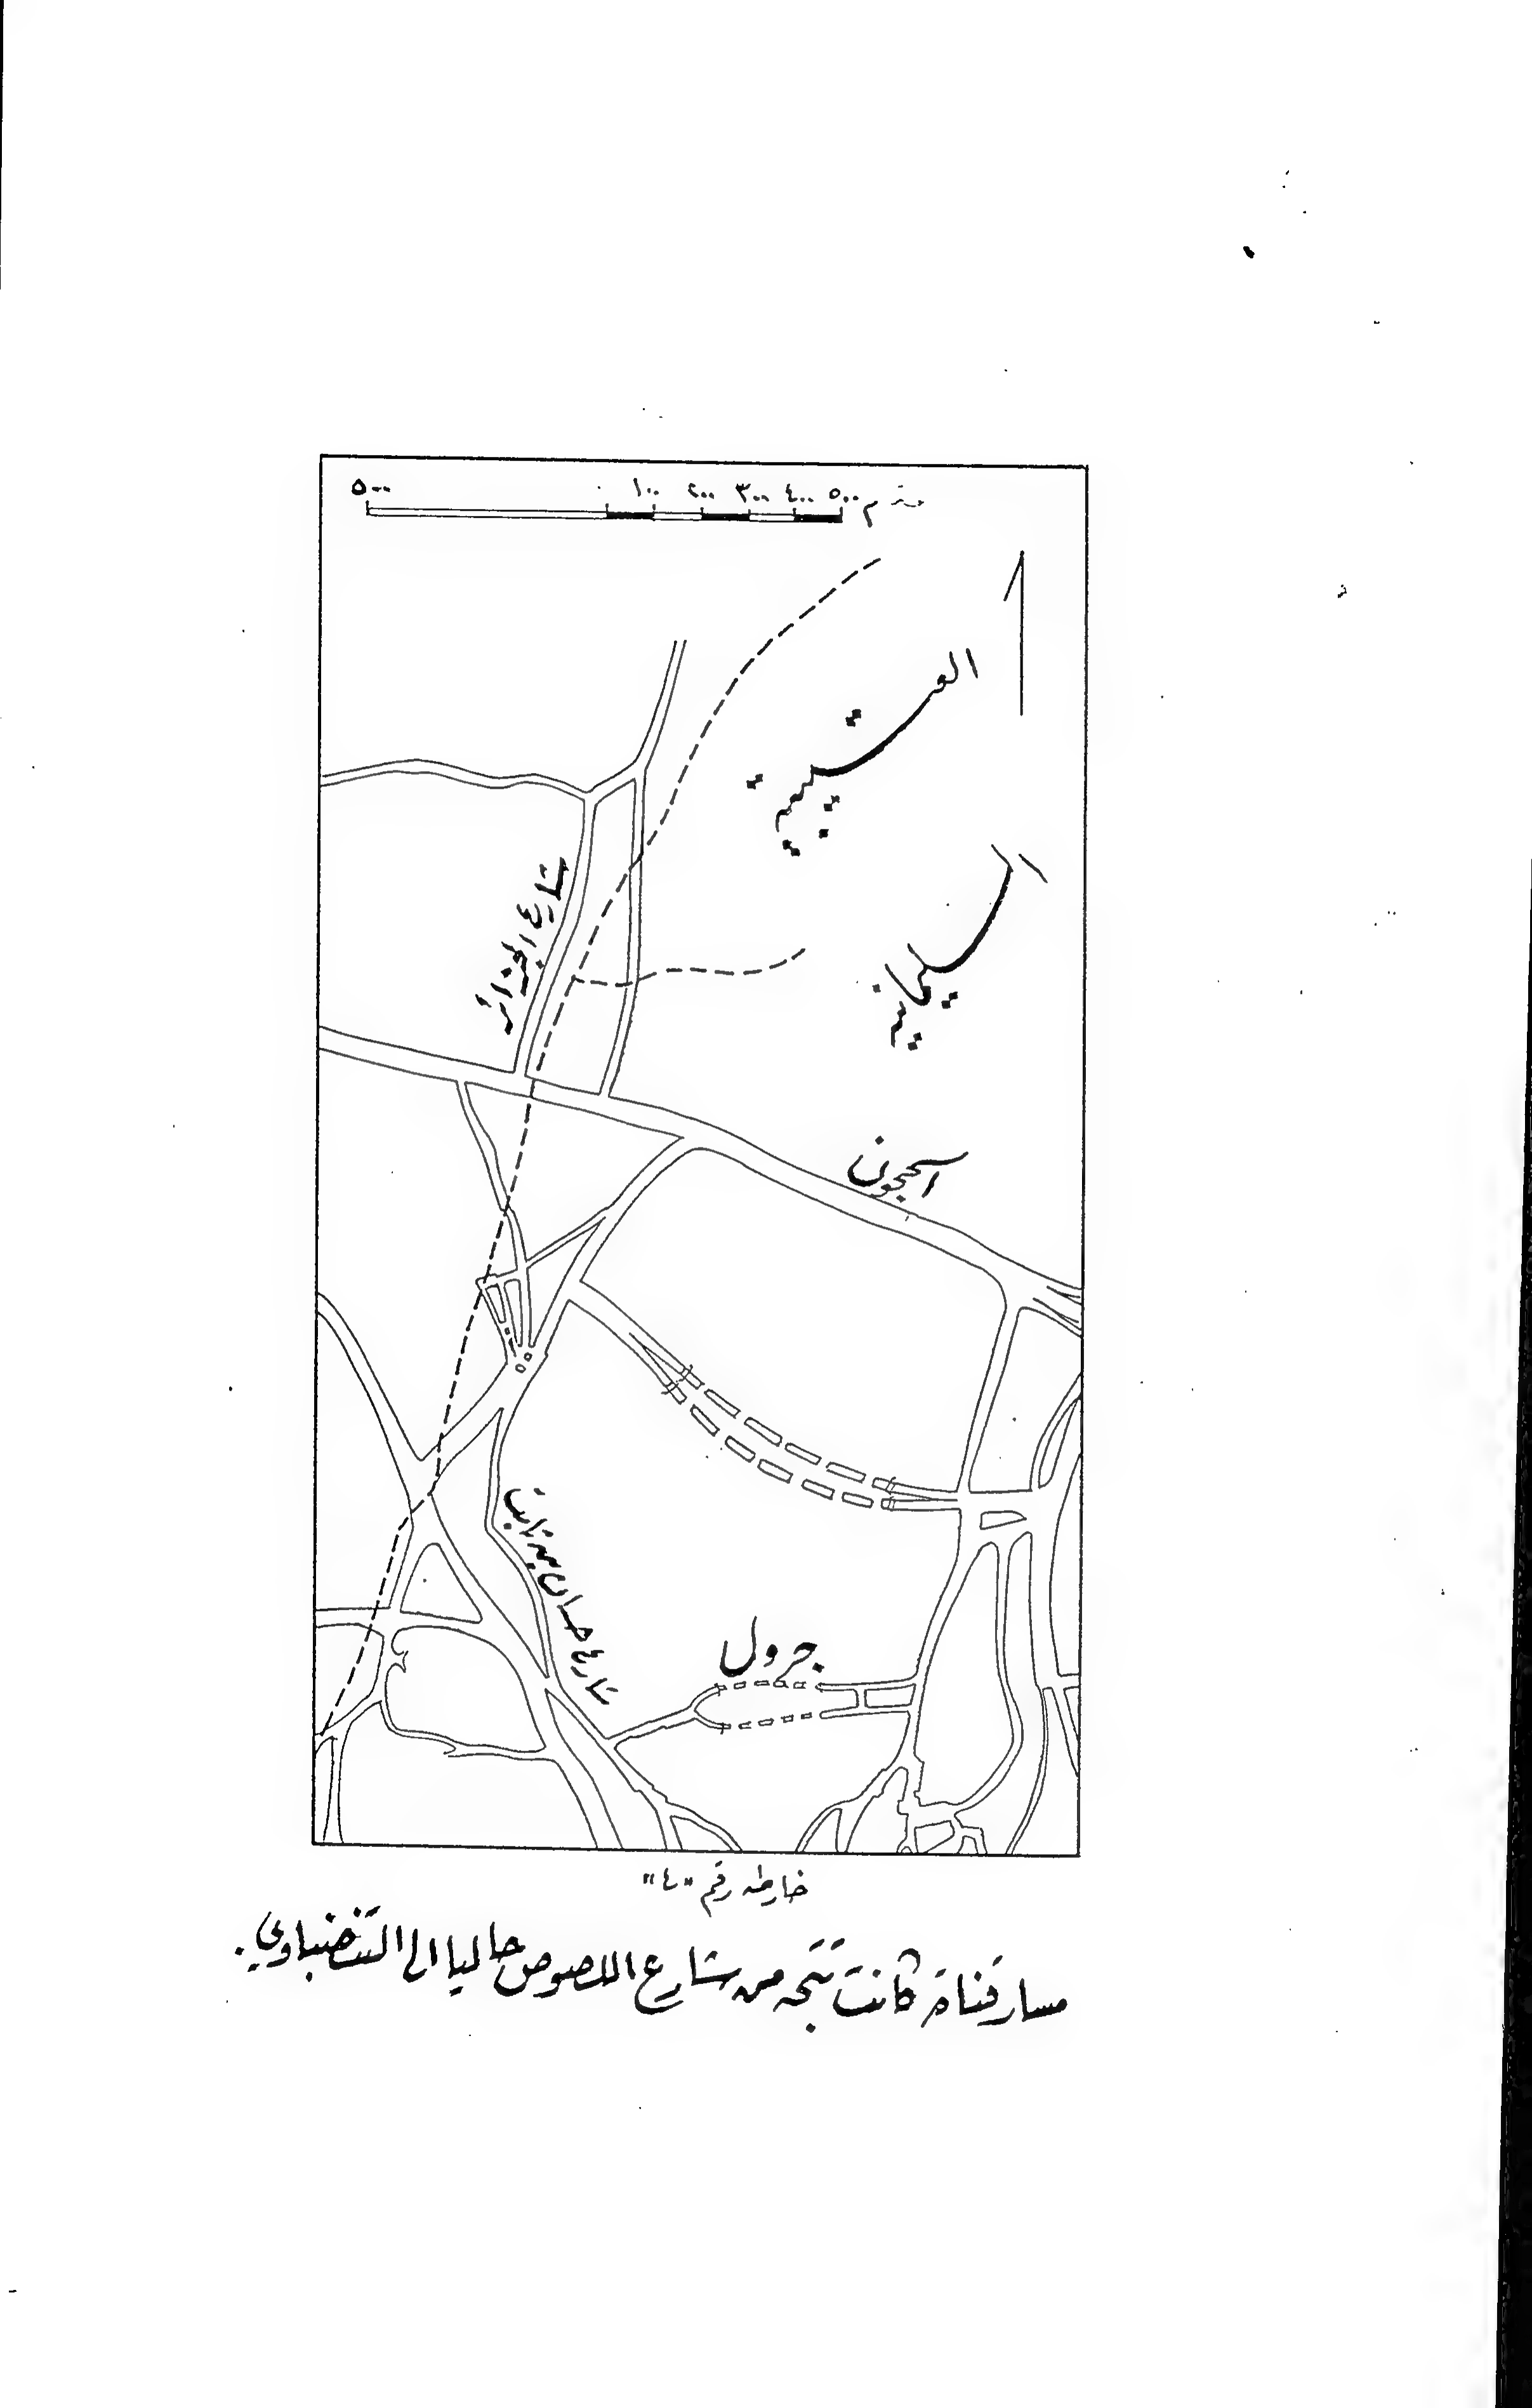 ٥٠٠ ٠ ١٠٠ ٢٠٠ ٣٠٠ ٤٠٠ ٥٠٠ م
العتيبية
السليمانية
شارع الجزائر
الحجون
شارع حسان بن ثابت
جرول
خارطه رقم "٤"
مسار قناة كانت تتجه من شارع اللصوص حاليا الى التنضباوي.